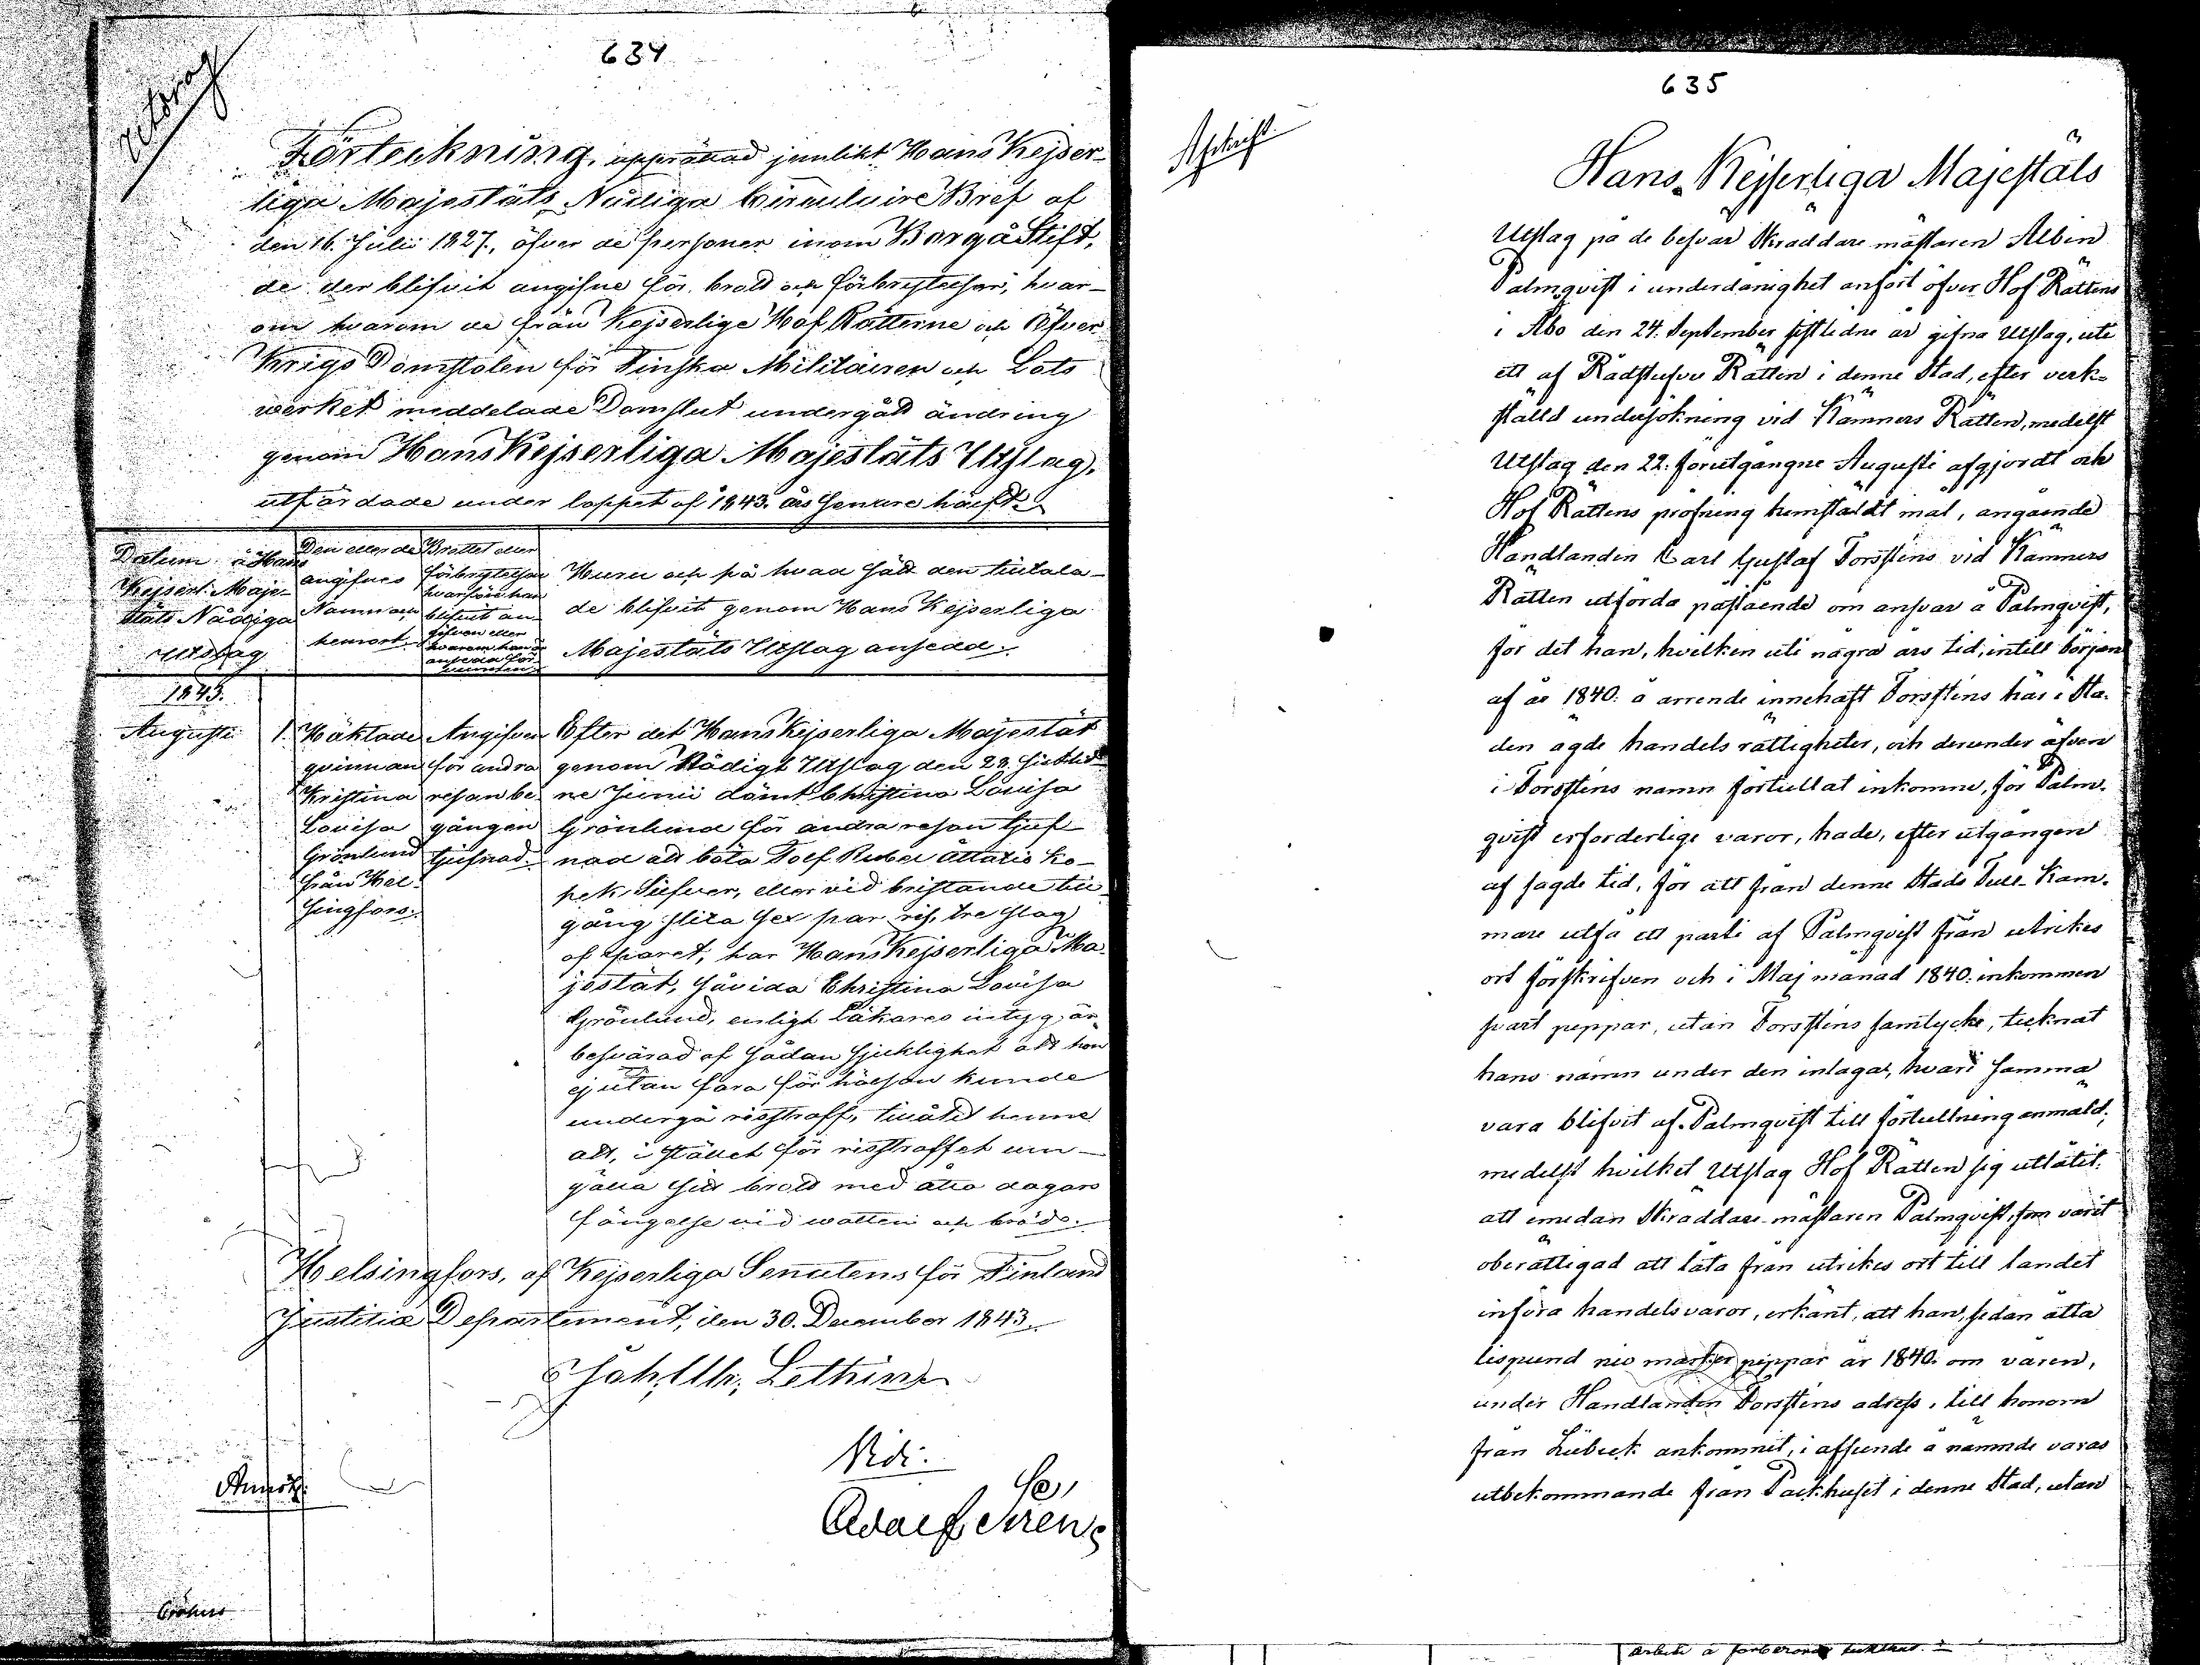 634
Utdrag
Förteckning, upprättad jemlikt Hans Kejser-
liga Majestäts Nådiga Circulaire Bref af
den 16. Julii 1827., öfver de personer inom Borgå Stift,
de der blifvit angifne för brott och förbrytelser, hvar-
om hvarom de från Kejserlige Hof Rätterne och Öfver
Krigs Domstolen för Finska Militairen och Lots
werket meddelade Domslut undergått ändring
genom Hans Kejserliga Majestäts Utslag,
utfärdade under loppet af 1843. års senare hälft.
Datum å Hans
Kejserl. Maje-
stäts Nådiga
utslag
Den eller de
angifnes
Namn och
hemort.
Brottet eller
förbrytelsen
hvarföre han
blifvit an-
gifven eller
hvarom han är
ansedd för-
vunnen.
Huru och på hvad sätt den tilltala-
de blifvit genom Hans Kejserliga
Majestäts Utslag ansedd.
1843.
Augusti 1.
Häktade
qvinnan
Kristina
Lovisa
Grönlund
från Hel-
singfors.
Angifven
för andra
resan be-
gången
tjufnad.
Efter det Hans Kejserliga Majestät
genom Nådigt Utslag den 28. sistlid-
ne Junii dömt Christina Lovisa
Grönlund för andra resan tjuf-
nad att böta Tolf Rubel åttatio Ko-
pek Silfver, eller vid bristande till-
gång slita sex par ris, tre slag
af paret, har Hans Kejserliga Ma-
jestät, såvida Christina Lovisa
Grönlund, enligt Läkares intyg, är
besvärad af sådan sjuklighet att hon
ej utan fara för hälsan kunde
undergå risstraff, tillåtit henne
att, i stället för risstraffet um-
gälla sitt brott med åtta dagars
fängelse vid watten och bröd.
Helsingfors, af Kejserliga Senatens för Finland
Justitiæ Departement, den 30. December 1843.
Joh. Ulr. Lethin
Vidi:
635
Afskrift
Hans Kejserliga Majestäts
Utslag på de besvär Skräddare mästaren Albin
Palmqvist i underdånighet anfört öfver Hof Rättens
i Åbo den 24. September sistledne år gifna Utslag, uti
ett af Rådstufvu Rätten i denne Stad, efter verk-
ställd undersökning vid Kämners Rätten, medelst
Utslag den 22. förutgångne Augusti afgjordt och
Hof Rättens pröfning hemstäldt mål, angående
Handlanden Carl Gustaf Forssténs vid Kämners
Rätten utförda påstående om ansvar å Palmqvist,
för det han, hvilken uti några års tid, intill början
af år 1840. å arrende innehaft Forssténs här i Sta-
den ägde handels rättigheter, och derunder äfven
i Forssténs namn förtullat inkomne, för Palm-
qvist erforderlige varor, hade, efter utgången
af sagde tid, för att från denne Stads Tull-Kam-
mare utfå ett parti af Palmqvist från utrikes
ort förskrifven och i Maj månad 1840. inkommen
svart peppar, utan Forssténs samtycke, tecknat
hans namn under den inlaga, hvari samma
vara blifvit af Palmqvist till förtullning anmäld;
medelst hvilket Utslag Hof Rätten sig utlåtit:
att emedan Skräddare mästaren Palmqvist, som varit
oberättigad att låta från utrikes ort till landet
införa handelsvaror, erkänt, att han, sedan åtta
lispund nio marker peppar år 1840. om våren,
under Handlanden Forssténs adress, till honom
från Lübeck ankommit, i afseende å nämnde varas
utbekommande från Packhuset i denne Stad, utan